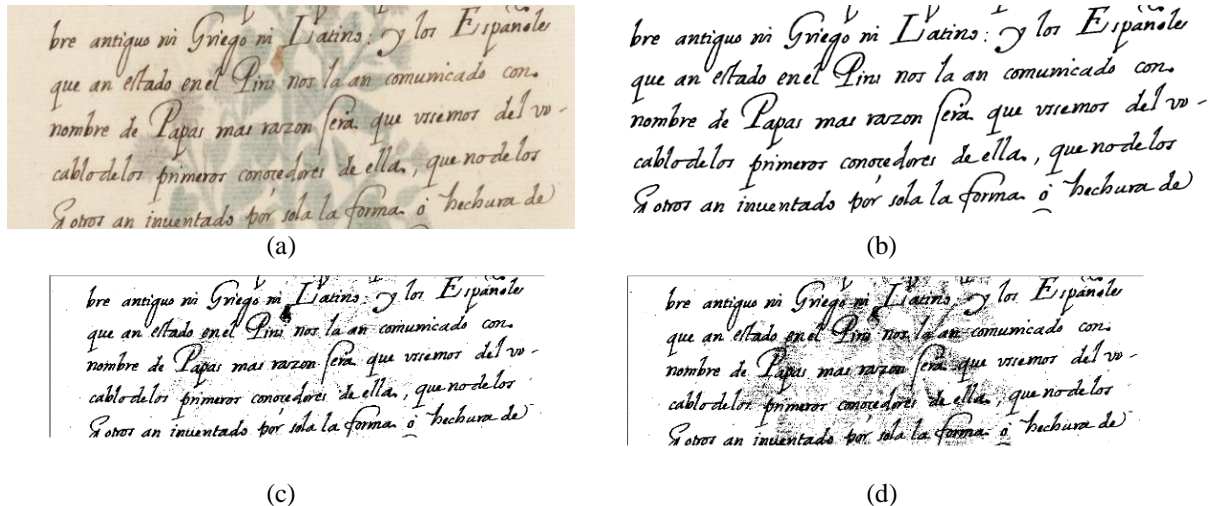 bre antiguo ni Griego ni Latino: y los Españoles
que an estado en el Piru nos la an comunicado con
nombre de Papas mas razon será que usemos del vo-
cablo de los primeros conocedores de ella, que no de los
q otros an inventado por sola la forma ó hechura de
(a)
bre antiguo ni Griego ni Latino: y los Españoles
que an estado en el Piru nos la an comunicado con
nombre de Papas mas razon será que usemos del vo-
cablo de los primeros conocedores de ella, que no de los
q otros an inventado por sola la forma ó hechura de
(b)
bre antiguo ni Griego ni Latino: y los Españoles
que an estado en el Piru nos la an comunicado con
nombre de Papas mas razon será que usemos del vo-
cablo de los primeros conocedores de ella, que no de los
q otros an inventado por sola la forma ó hechura de
(c)
bre antiguo ni Griego ni Latino, y los Españoles
que an estado en el Piru nos la an comunicado con
nombre de Papas mas razon será que usemos del vo-
cablo de los primeros conocedores de ella, que no de los
q otros an inventado por sola la forma ó hechura de
(d)